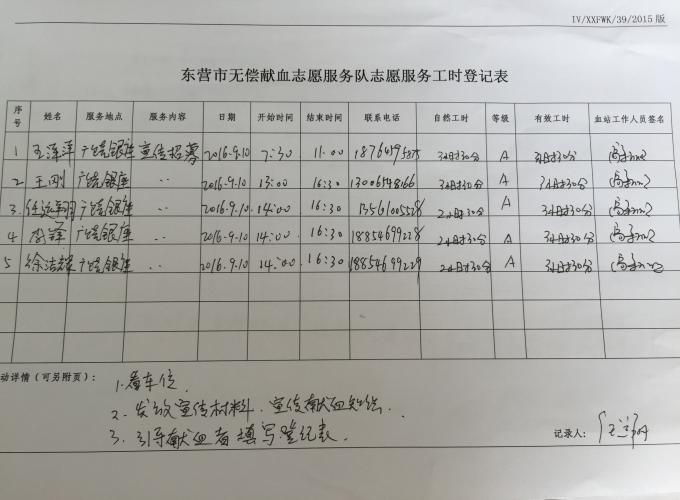 IV/XXFWK/39/2015版
东营市无偿献血志愿服务队志愿服务工时登记表
序号 姓名 服务地点 服务内容 日期 开始时间 结束时间 联系电话 自然工时 等级 有效工时 血站工作人员签名
1 王萍萍 广饶银座 宣传招募 2016.9.10 7:30 11:00 3小时30分 A 3小时30分
2 王刚 广饶银座 〃 2016.9.10 13:00 16:30 3小时30分 A 3小时30分
3 广饶银座 〃 2016.9.10 14:00 16:30 2小时30分 A 3小时30分
4 李锋 广饶银座 〃 2016.9.10 14:00 16:30 18854699228 2小时30分 A 3小时30分
5 徐洁辉 广饶银座 〃 2016.9.10 14:00 16:30 18854699229 2小时30分 A 3小时30分
动详情（可另附页）：
1.看车位.
2.发放宣传材料.宣传献血知识.
3.引导献血者填写登记表.
记录人：